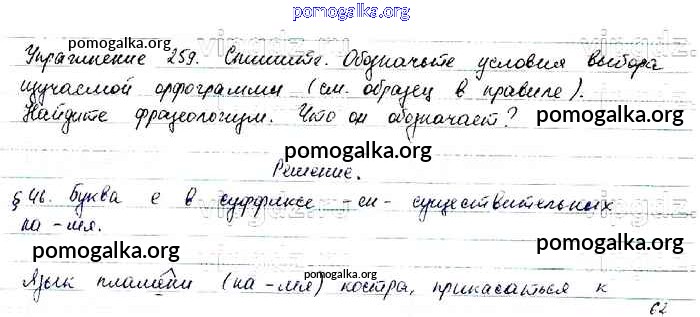 pomogalka.org
Упражнение 259. Спишите. Обозначьте условия выбора
pomogalka.org
изучаемой орфограммы (см. образец в правиле).
pomogalka.org
Найдите фразеологизм. Что он обозначает? pomogalka.org
pomogalka.org
Решение.
§46. Буква е в суффиксе -ен- существительных
pomogalka.org
на -мя.
pomogalka.org pomogalka.org
Язык пламени (на -мя) костра, прикасаться к
pomogalka.org
62